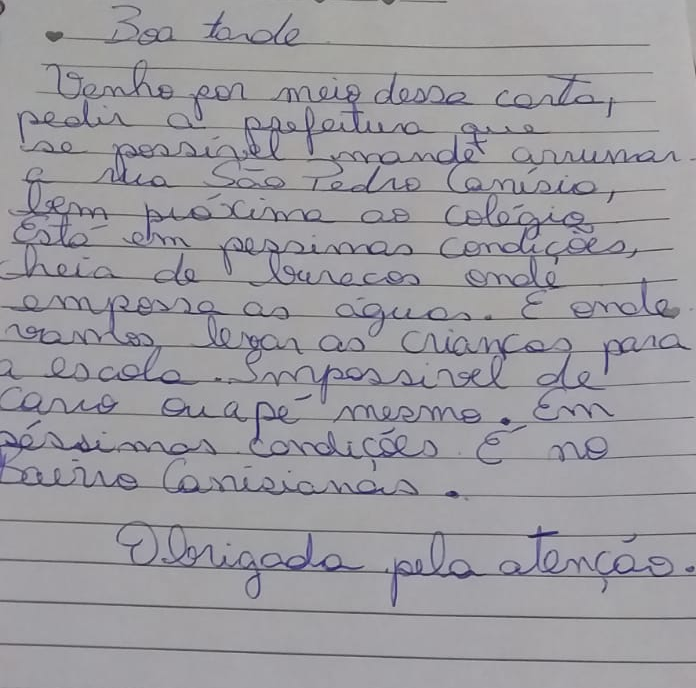 Boa tarde
Venho por meio dessa carta,
pedir a prefeitura que
se possível mandet arrumar
a rua São Pedro Canísio,
bem próxima ao colégio
Está em pessimas condições,
cheia de buracos onde
empossa as águas. É onde
vamos levar as crianças para
a escola. Impossível de
carro ou apé mesmo. Em
péssimas condições. É no
bairro Canisianas.
Obrigada pela atenção.